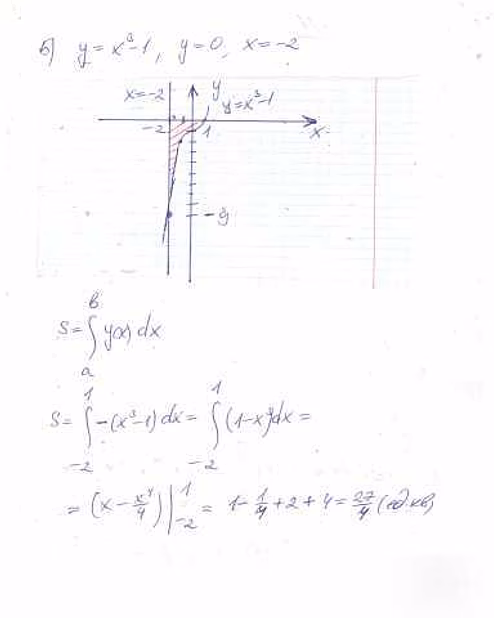 б) y = x³-1, y=0, x=-2
x=-2 y
y=x³-1
-2 1 x
-9
b
S=∫ y(x) dx
a
1 1
S= ∫ -(x³-1) dx = ∫ (1-x³)dx =
-2 -2
= (x - x⁴/4) |₋₂¹ = 1 - 1/4 + 2 + 4 = 27/4 (ед.кв)